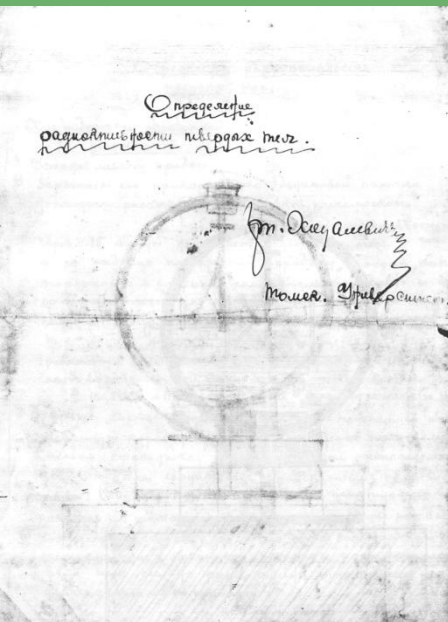 Определение
радиоактивности твердых тел.
Томск. Университет.